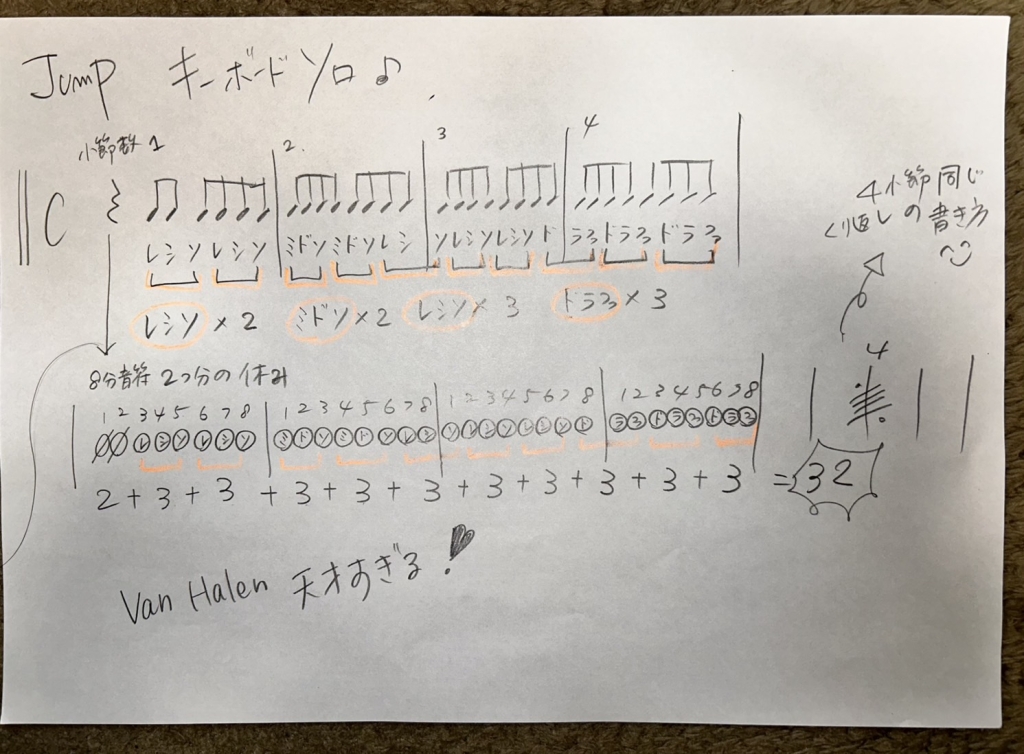 Jump キーボードソロ♪
小節数 1 2. 3 4
C レシソレシソ ミドソミドソレシ ソレシソレシソド ラファドラファドラファ
レシソ×2 ミドソ×2 レシソ×3 ドラファ×3
4小節同じ
くり返しの書き方
8分音符2つ分の休み
4
1 2 3 4 5 6 7 8 1 2 3 4 5 6 7 8 1 2 3 4 5 6 7 8 1 2 3 4 5 6 7 8
レシソレシソ ミドソミドソレシ ソレシソレシソド ラファドラファドラファ
2+3+3+3+3+3+3+3+3+3+3 =32
Van Halen 天才すぎる!